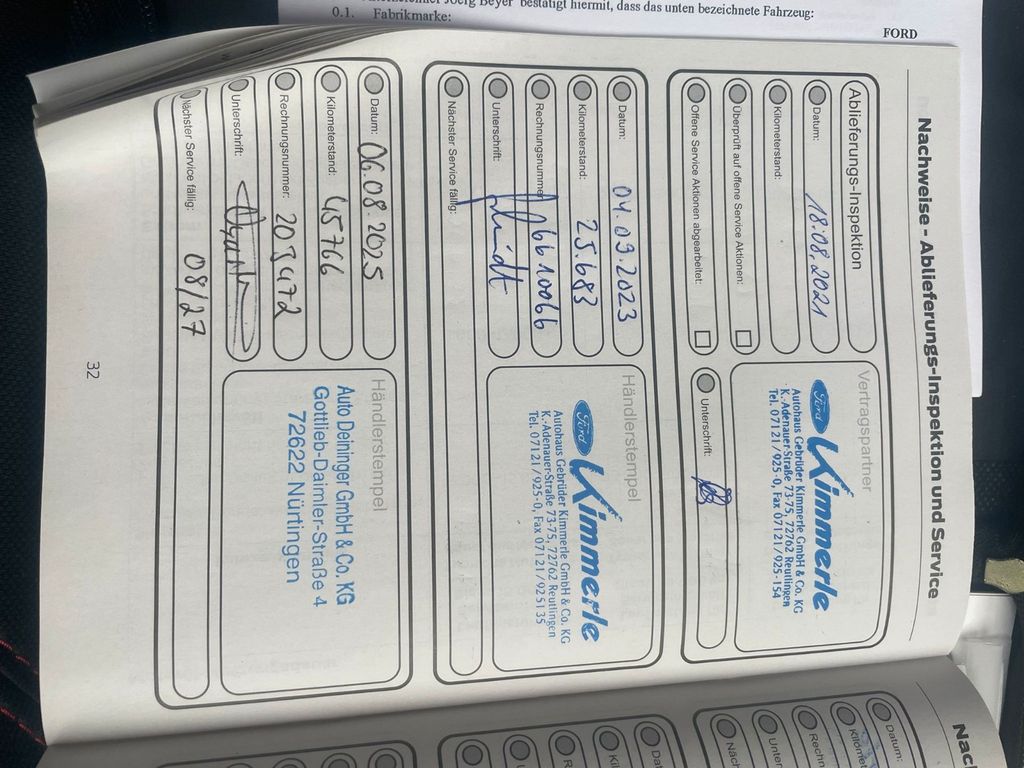 Joerg Beyer bestätigt hiermit, dass das unten bezeichnete Fahrzeug:
0.1. Fabrikmarke:
FORD
Nachweise - Ablieferungs-Inspektion und Service
Ablieferungs-Inspektion
Datum: 18.08.2021
Kilometerstand:
Überprüft auf offene Service Aktionen:
Offene Service Aktionen abgearbeitet:
Vertragspartner
Ford Kimmerle
Autohaus Gebrüder Kimmerle GmbH & Co. KG
K.-Adenauer-Straße 73-75, 72762 Reutlingen
Tel. 07121/925-0, Fax 07121/925-154
Unterschrift:
Datum: 04.09.2023
Kilometerstand: 25.683
Rechnungsnummer: 6610066
Unterschrift:
Nächster Service fällig:
Händlerstempel
Ford Kimmerle
Autohaus Gebrüder Kimmerle GmbH & Co. KG
K.-Adenauer-Straße 73-75, 72762 Reutlingen
Tel. 07121/925-0, Fax 07121/925135
Datum: 06.08.2025
Kilometerstand: 45766
Rechnungsnummer: 203472
Unterschrift:
Nächster Service fällig: 08/27
Händlerstempel
Auto Deininger GmbH & Co. KG
Gottlieb-Daimler-Straße 4
72622 Nürtingen
32
Nac
Datum:
Kilome
Rechn
Unter
Näch
Dat
Kil
R
U